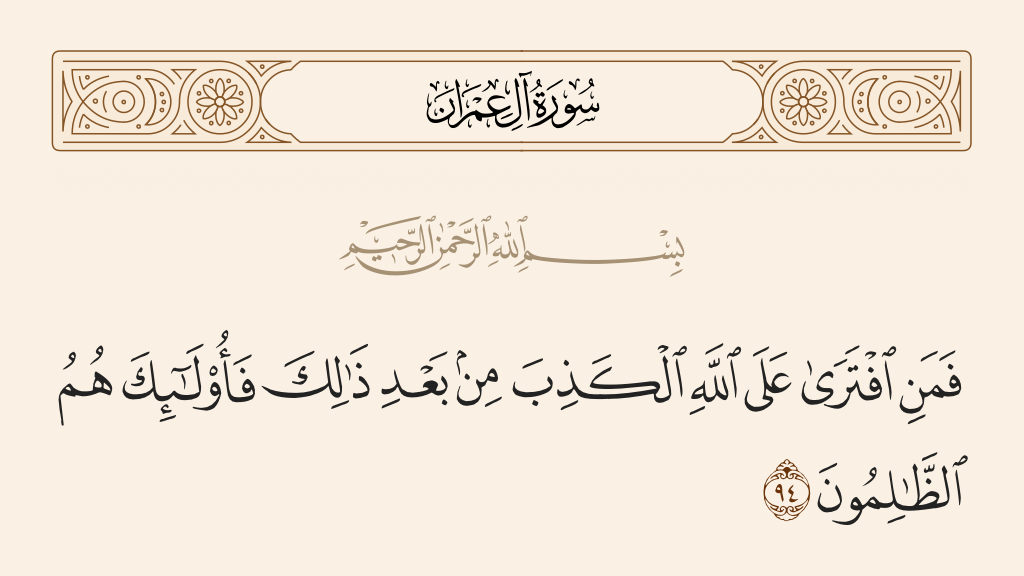 سُورَةُ آلِ عِمْرَانَ
بِسْمِ ٱللَّهِ ٱلرَّحْمَٰنِ ٱلرَّحِيمِ
فَمَنِ ٱفْتَرَىٰ عَلَى ٱللَّهِ ٱلْكَذِبَ مِنۢ بَعْدِ ذَٰلِكَ فَأُو۟لَـٰٓئِكَ هُمُ
ٱلظَّـٰلِمُونَ ٩٤